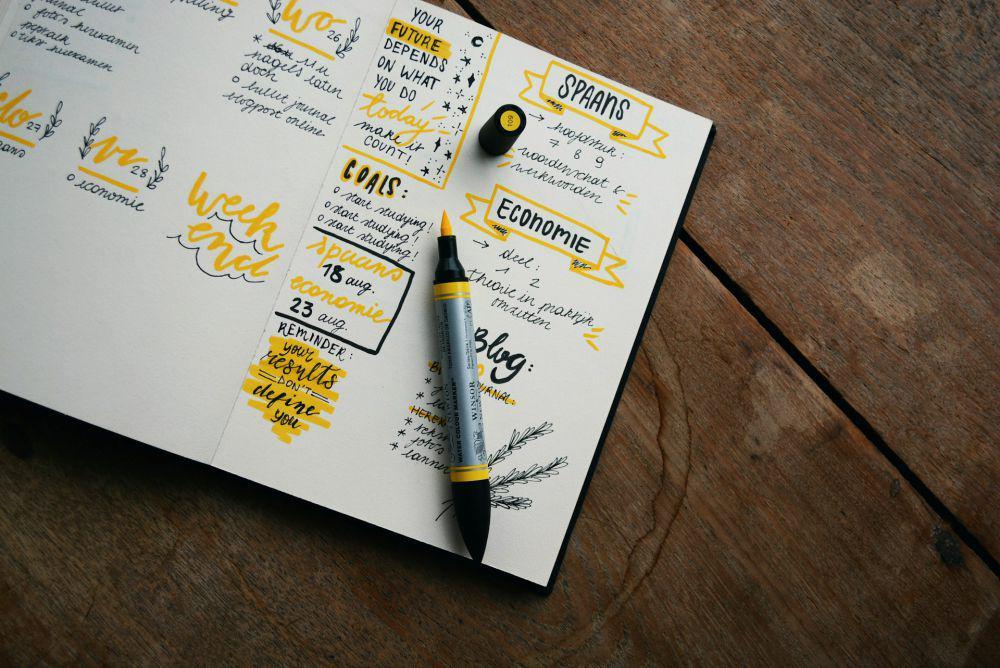 foto's herexamen
herexamen
27
vr
28
economie
week
end
wo
26
nagels laten
doen
bullet journal
blogpost online
YOUR
FUTURE
DEPENDS
ON WHAT
YOU DO
today
make it
COUNT!
GOALS:
start studying!
start studying!
start studying!
spaans
18 aug.
economie
23 aug.
REMINDER:
your
results
DON'T
define
you
601
SPAANS
→ hoofdstuk:
7 8 9
woordenschat &
werkwoorden
ECONOMIE
→ deel:
1 2
theorie in praktijk
omzetten
Blog:
WATER COLOUR MARKER
WINSOR